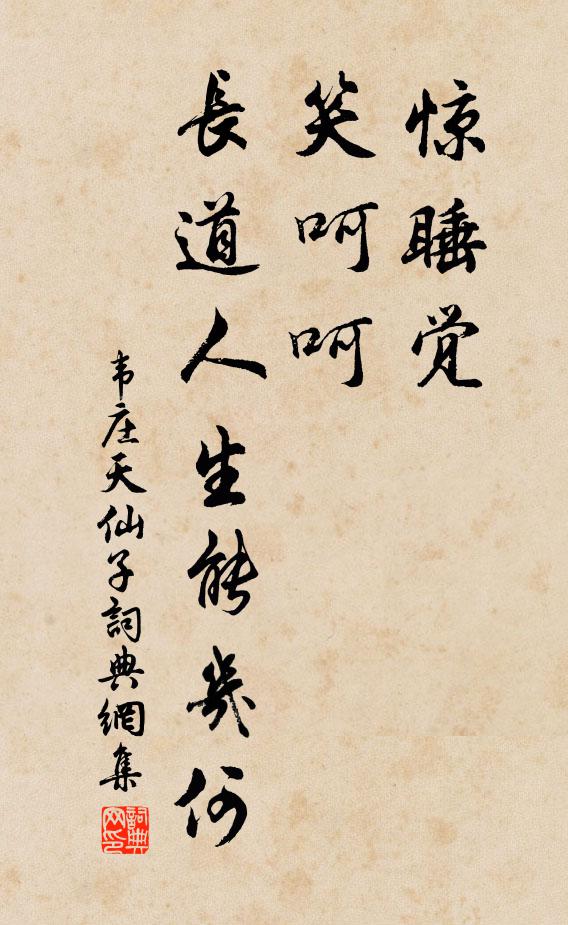 惊睡觉
笑呵呵
長道人生能幾何
韦庄天仙子詞典網集
詞典
网印